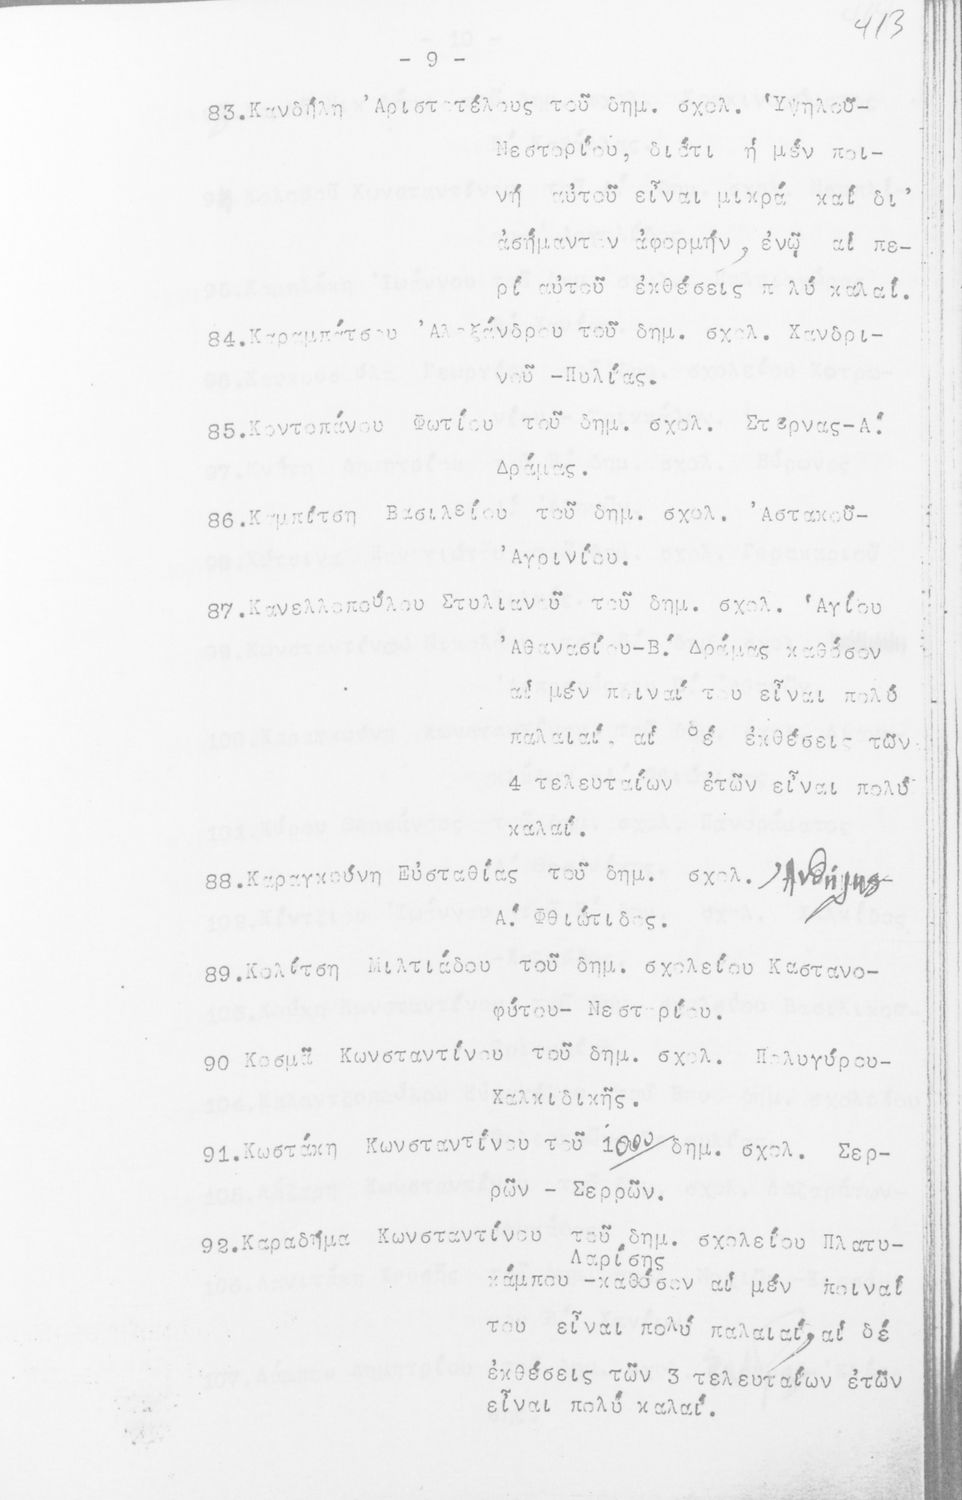 413
- 9 -
83.Κανδήλη Ἀριστοτέλους τοῦ δημ. σχολ. Ὑψηλοῦ-
Νεστορίου, διότι ἡ μέν ποι-
νή αὐτοῦ εἶναι μικρά καί δι'
ἀσήμαντον ἀφορμήν, ἐνῷ αἱ πε-
ρί αὐτοῦ ἐκθέσεις πολύ καλαί.
84.Καραμπάτσου Ἀλεξάνδρου τοῦ δημ. σχολ. Χανδρι-
νοῦ -Πυλίας.
85.Κοντοπάνου Φωτίου τοῦ δημ. σχολ. Στέρνας-Α.
Δράμας.
86.Καμπίτση Βασιλείου τοῦ δημ. σχολ. Ἀστακοῦ-
Ἀγρινίου.
87.Κανελλοπούλου Στυλιανοῦ τοῦ δημ. σχολ. Ἁγίου
Ἀθανασίου-Β. Δράμας καθόσον
αἱ μέν ποιναί του εἶναι πολύ
παλαιαί, αἱ δέ ἐκθέσεις τῶν
4 τελευταίων ἐτῶν εἶναι πολύ
καλαί.
88.Καραγκούνη Εὐσταθίας τοῦ δημ. σχολ. Ἀνθήλης
Α. Φθιώτιδος.
89.Κολίτση Μιλτιάδου τοῦ δημ. σχολείου Καστανο-
φύτου- Νεστορίου.
90 Κοσμᾶ Κωνσταντίνου τοῦ δημ. σχολ. Πολυγύρου-
Χαλκιδικῆς.
91.Κωστάκη Κωνσταντίνου τοῦ 10ου δημ. σχολ. Σερ-
ρῶν - Σερρῶν.
92.Καραδήμα Κωνσταντίνου τοῦ δημ. σχολείου Πλατυ-
Λαρίσης
κάμπου -καθόσον αἱ μέν ποιναί
του εἶναι πολύ παλαιαί, αἱ δέ
ἐκθέσεις τῶν 3 τελευταίων ἐτῶν
εἶναι πολύ καλαί.